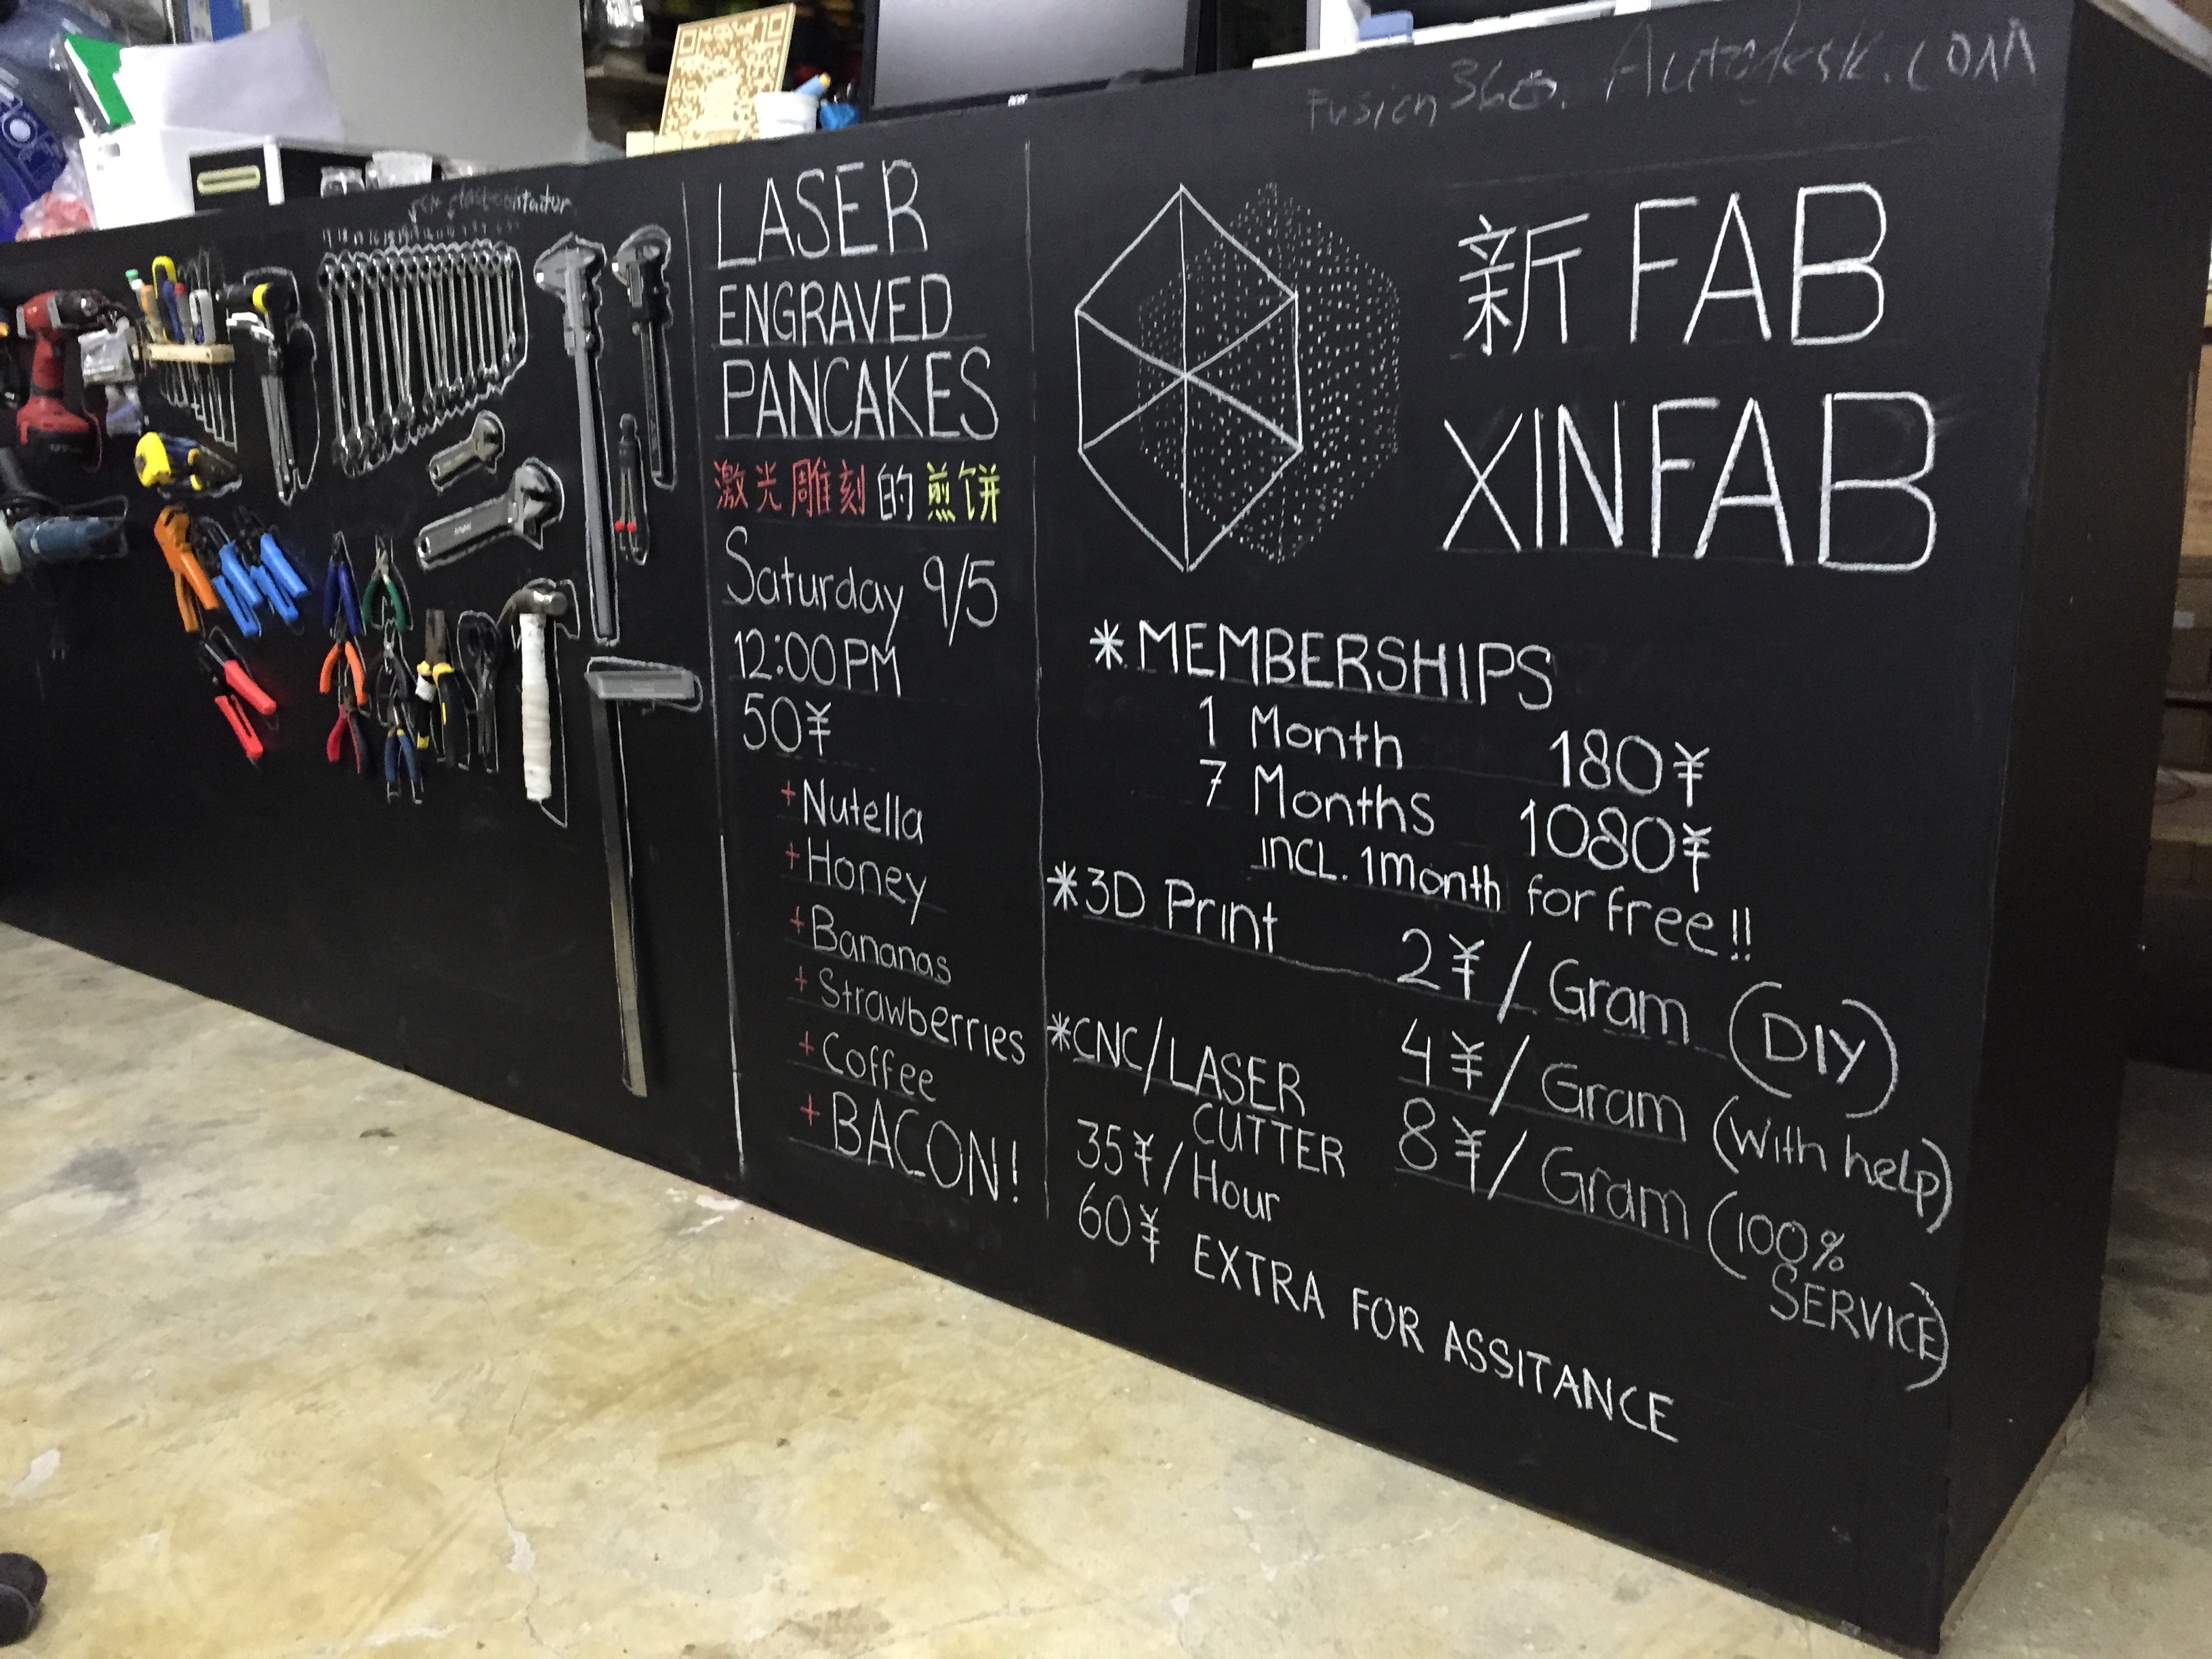 Fusion 360. Autodesk.com
acer
LASER
ENGRAVED
PANCAKES
激光雕刻的煎饼
Saturday 9/5
12:00PM
50¥
+Nutella
+Honey
+Bananas
+Strawberries
+Coffee
+BACON!
新 FAB
XINFAB
*MEMBERSHIPS
1 Month 180¥
7 Months 1080¥
INCL. 1month for free!!
*3D Print
2¥/Gram (DIY)
4¥/Gram (with help)
8¥/Gram (100%
SERVICE)
*CNC/LASER
CUTTER
35¥/Hour
60¥ EXTRA FOR ASSITANCE